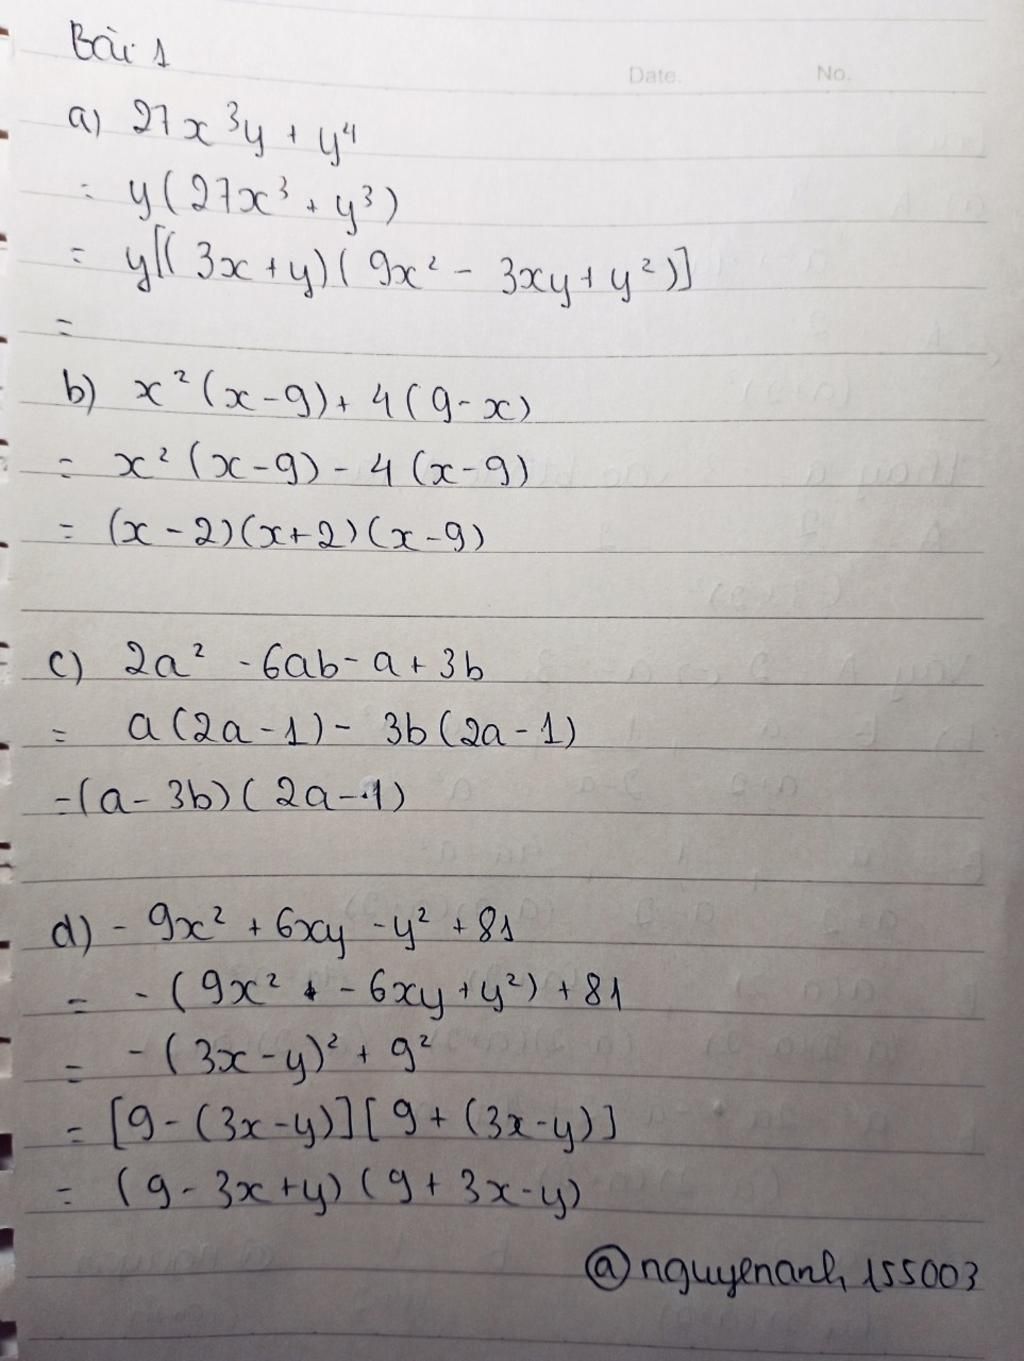 Bài 1
Date. No.
a) 27x³y + y⁴
= y(27x³ + y³)
= y[(3x+y)(9x² - 3xy + y²)]
=
b) x²(x-9) + 4(9-x)
= x²(x-9) - 4(x-9)
= (x-2)(x+2)(x-9)
c) 2a² - 6ab - a + 3b
= a(2a-1) - 3b(2a-1)
=(a-3b)(2a-1)
d) - 9x² + 6xy - y² + 81
= -(9x² - 6xy + y²) + 81
= -(3x-y)² + 9²
= [9-(3x-y)][9+(3x-y)]
= (9-3x+y)(9+3x-y)
@nguyenanh155003